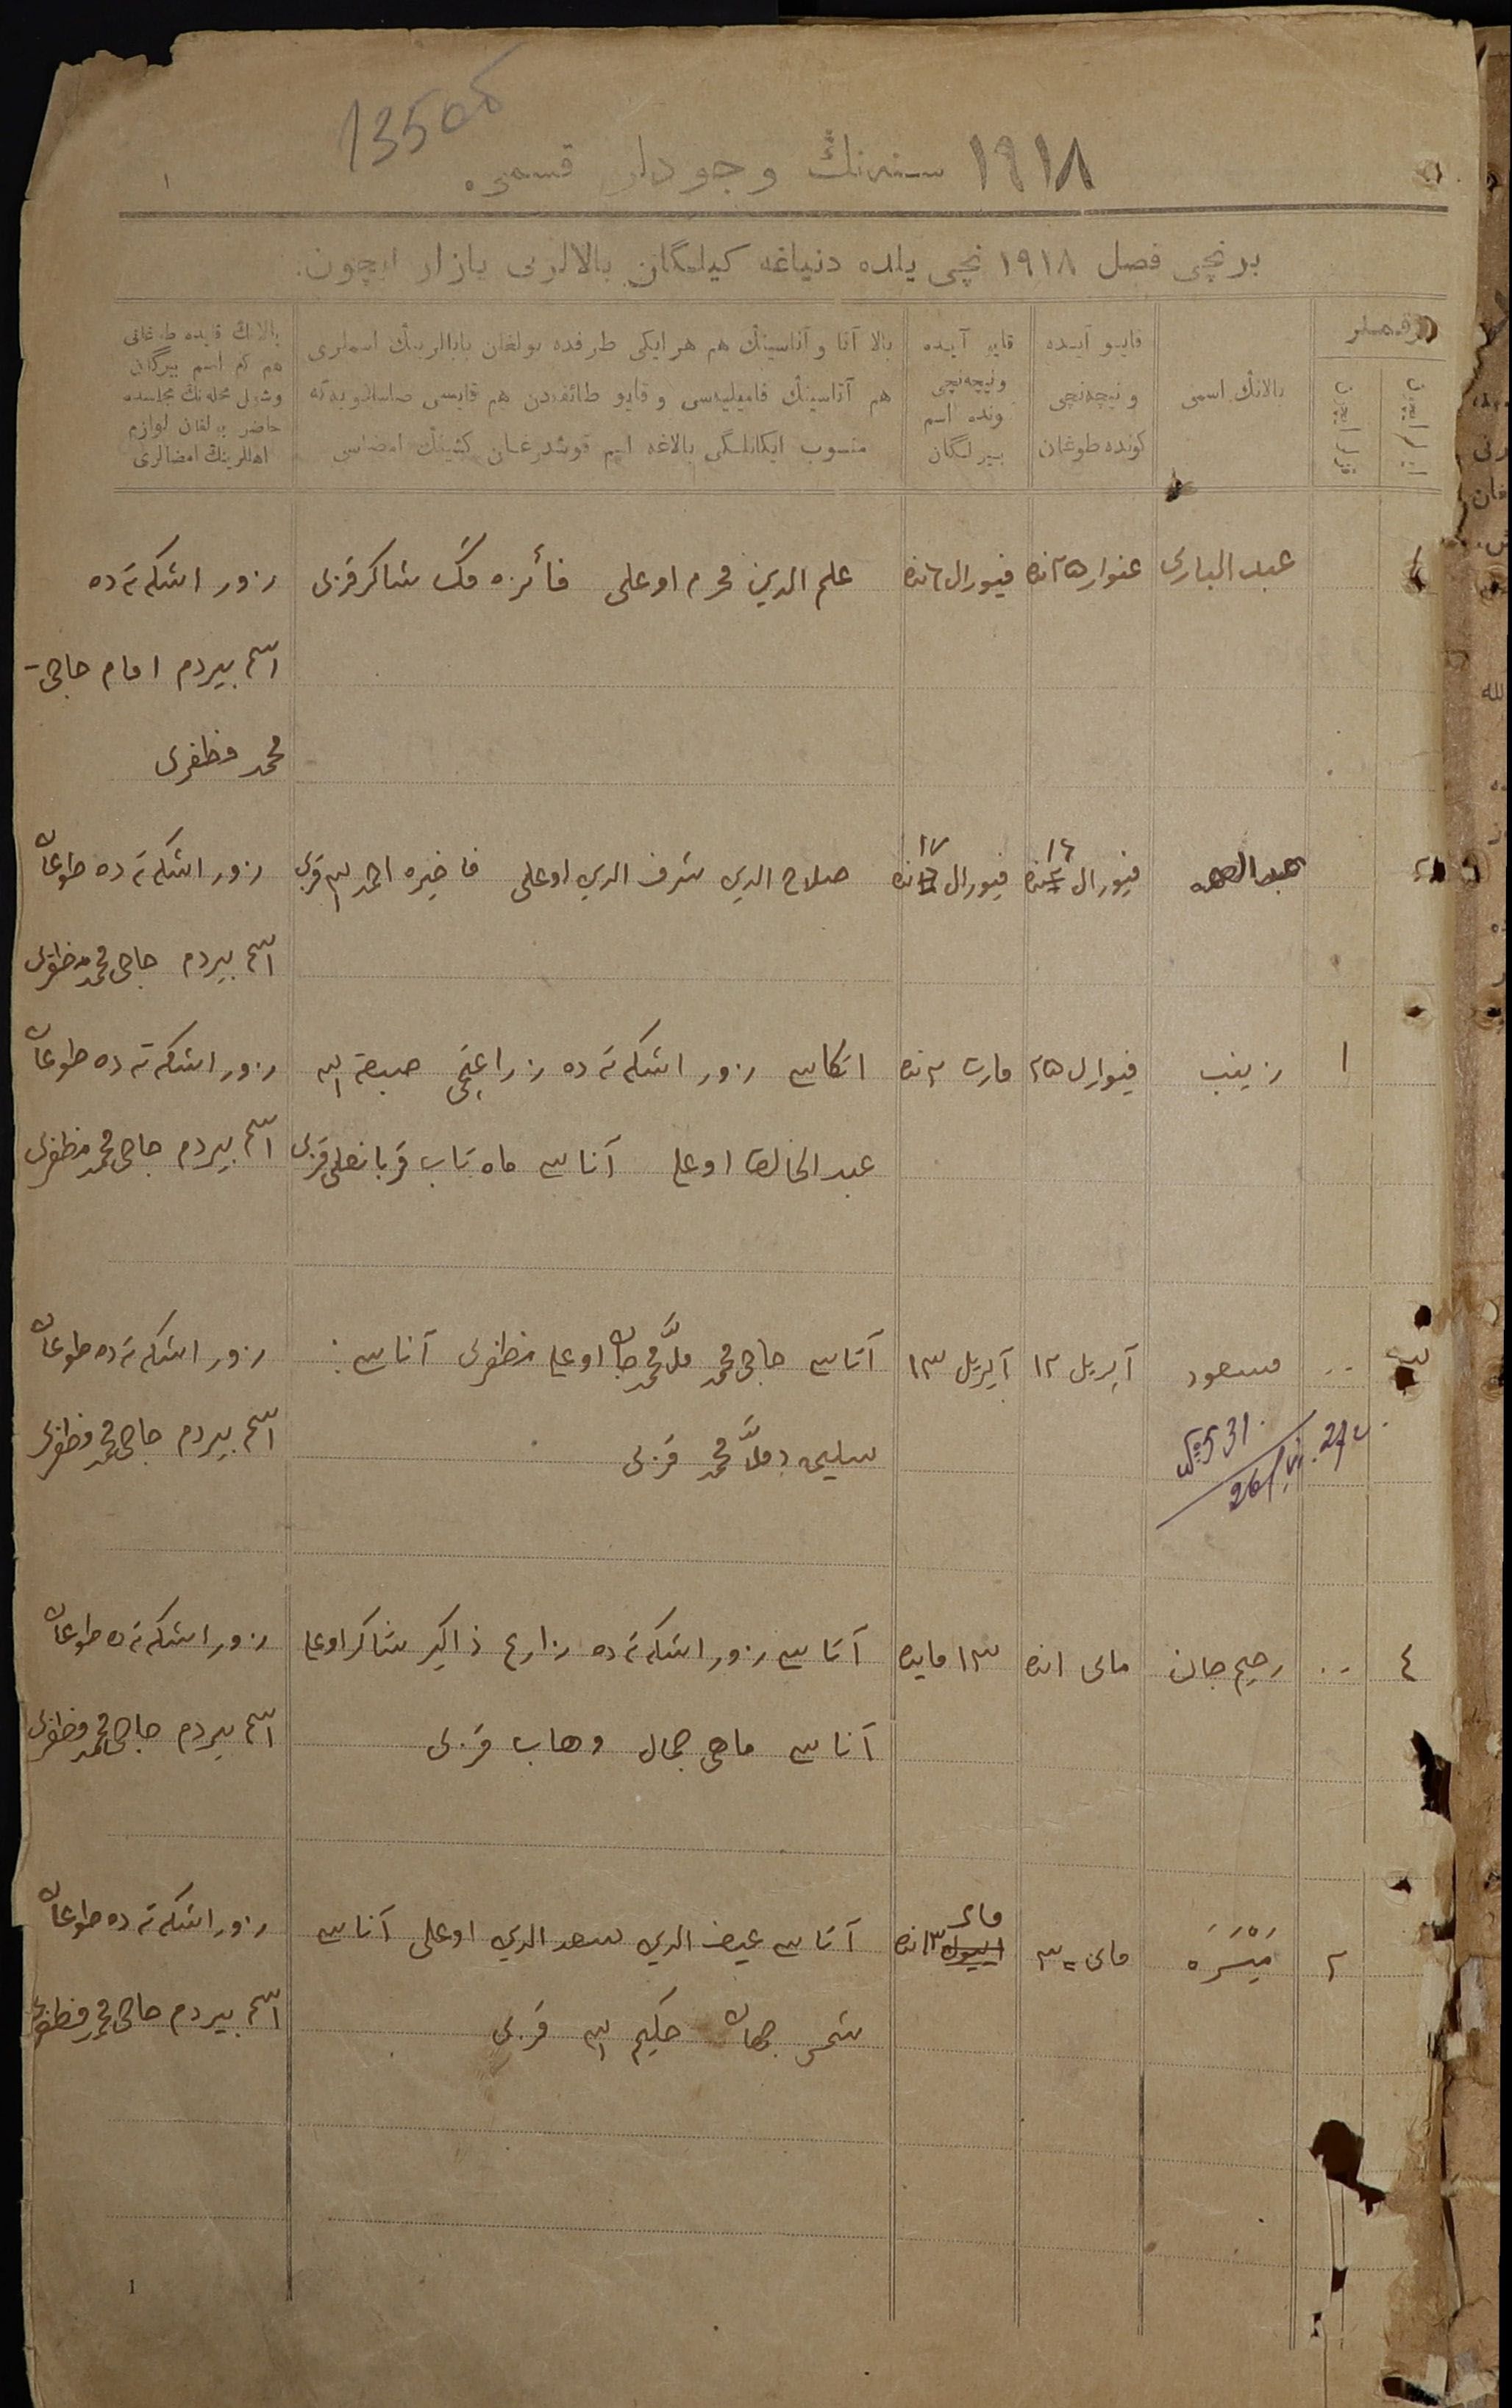 135об
۱۹۱۸ سنه‌نڭ وجودلر قسمی
۱
برنچی فصل ۱۹۱۸ نچی یلده دنیاغه کیلگان بالالرنی یازار ایچون.
بالانڭ اسمی
قایو آیده
و نیچه‌نچی
کونده طوغان
قایو آیده
و نیچه‌نچی
کونده اسم
بیرلگان
بالا آتا و آناسینڭ هم هر ایکی طرفده بولغان بابالرینڭ اسملری
هم آتاسینڭ فامیلیه‌سی و قایو طائفه‌دن هم قایسی
منسوب ایکانلگی بالاغه اسم قوشدرغان کشینڭ امضاسی
بالانڭ قایده طوغانی
هم کم اسم بیرگان
و شول محله‌نڭ مجلسده
حاضر بولغان لوازم
اهللرینڭ امضالری
۱
عبد الباری
غنوار ۲۵ نده
فیورال ٦ نده
علم الدین محرم اوغلی فائزه شاکر قزی
زور اشکه‌ته ده
اسم بیردم امام حاجی
محمد مظفری
۲
عبد الصمد
فیورال ۱٤ نده
فیورال ۱۷ نده
صلاح الدین شرف الدین اوغلی فاخیره احمد قزی
زور اشکه‌ته ده طوغان
اسم بیردم حاجی محمد مظفری
۱
زینب
فیوارل ۲۵
مارت ۲ نده
اتکاسی زور اشکه‌ته ده زراعتچی صبغة الله
عبد الخالق اوغلی آناسی ماه تاب قربانعلی قزی
زور اشکه‌ته ده طوغان
اسم بیردم حاجی محمد مظفری
۳
مسعود
آپریل ۱۲
آپریل ۱۳
آتاسی حاجی محمد ملا محمد جان اوغلی مظفری آناسی:
سلیمه دملا محمد قزی
زور اشکه‌ته ده طوغان
اسم بیردم حاجی محمد مظفری
№531.
26/VI. 27 г.
٤
رحیم جان
مای ۱ نده
۱۳ مایده
آتاسی زور اشکه‌ته ده زارع ذاکیر شاکر اوغلی
آناسی ماهی جمال وهاب قزی
زور اشکه‌ته ده طوغان
اسم بیردم حاجی محمد مظفری
۲
مَیْسَرَه
مای ۳۰
مای
آتاسی سعد الدین اوغلی آناسی
شمس جهان حکیم الله قزی
زور اشکه‌ته ده طوغان
اسم بیردم حاجی محمد مظفری
1